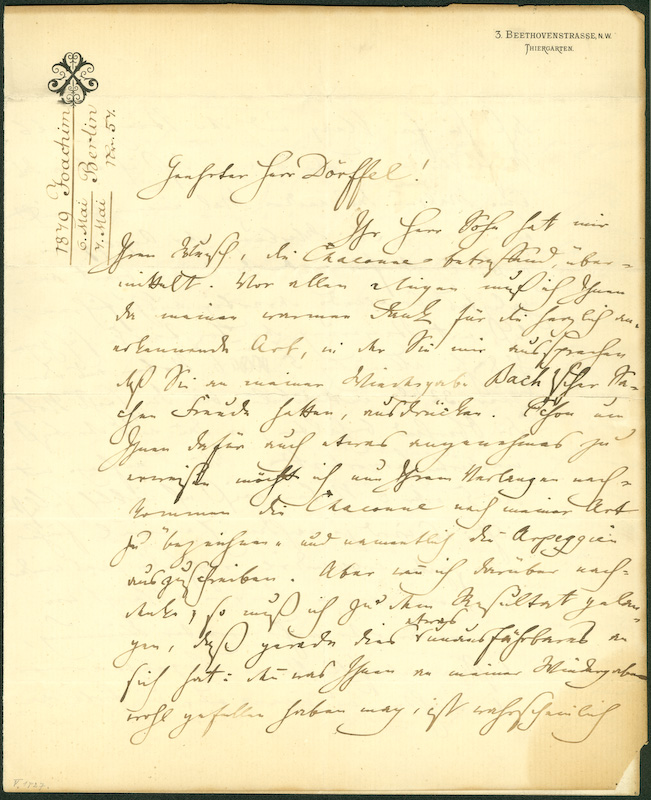 3. BEETHOVENSTRASSE, N.W.
THIERGARTEN.
1879 Joachim
6. Mai Berlin
7. Mai
Geehrter Herr Dörffel!
Ihr Herr Sohn hat mir
Ihren Wunsch, die Chaconne betreffend, über-
mittelt. Vor allen Dingen muß ich Ihnen
da meinen warmen Dank für die herzlich an-
erkennende Art, in der Sie mir aussprechen
daß Sie an meiner Wiedergabe Bach'scher Sa-
chen Freude hatten, ausdrücken. Schon um
Ihnen dafür auch etwas angenehmes zu
erweisen möcht ich um Ihrem Verlangen nach-
kommen die Chaconne nach meiner Art
zu bezeichnen und namentlich die Arpeggien
auszuschreiben. Aber wenn ich darüber nach-
denke, so muß ich zu dem Resultat gelan-
gen, daß gerade dies etwas unausführbares an
sich hat: denn was Ihnen an meiner Wiedergabe
wohl gefallen haben mag, ist wahrscheinlich